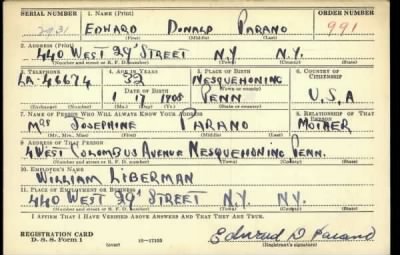 SERIAL NUMBER 1. NAME (Print) ORDER NUMBER
EDWARD DONALD PARANO 991
(First) (Middle) (Last)
2. ADDRESS (Print)
440 WEST 39' STREET N.Y. N.Y.
(Number and street or R. F. D. number) (Town) (County) (State)
3. TELEPHONE 4. AGE IN YEARS 5. PLACE OF BIRTH 6. COUNTRY OF CITIZENSHIP
LA-46674 32 NESQUEHONING
DATE OF BIRTH (Town or county)
1 17 1908 PENN U.S.A
(Exchange) (Number) (Mo.) (Day) (Yr.) (State or country)
7. NAME OF PERSON WHO WILL ALWAYS KNOW YOUR ADDRESS 8. RELATIONSHIP OF THAT PERSON
MRS JOSEPHINE PARANO MOTHER
(Mr., Mrs., Miss) (First) (Middle) (Last)
9. ADDRESS OF THAT PERSON
4 WEST COLOMBUS AVENUE NESQUEHONING PENN.
(Number and street or R. F. D. number) (Town) (County) (State)
10. EMPLOYER'S NAME
WILLIAM LIBERMAN
11. PLACE OF EMPLOYMENT OR BUSINESS
440 WEST 39' STREET N.Y. N.Y.
(Number and street or R. F. D. number) (Town) (County) (State)
I AFFIRM THAT I HAVE VERIFIED ABOVE ANSWERS AND THAT THEY ARE TRUE.
REGISTRATION CARD
D. S. S. Form 1 (over) 16-17105 Edward D Parano
(Registrant's signature)